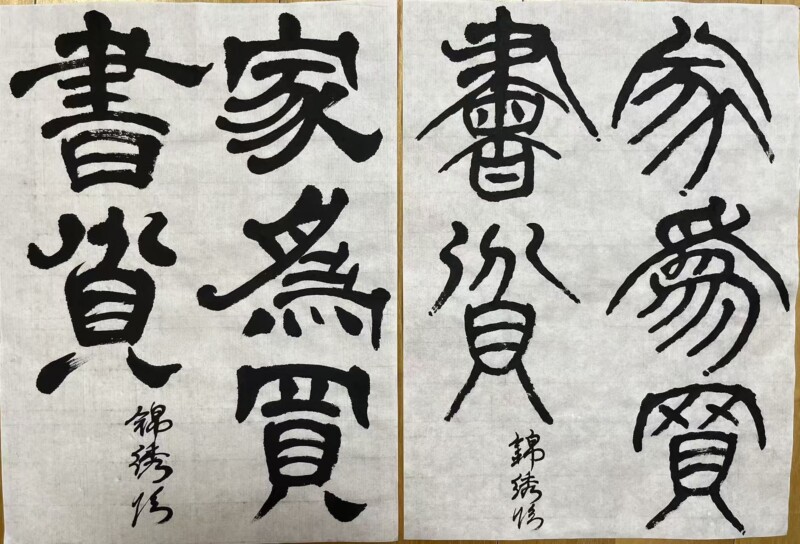 家為買
書貧
錦綉臨
家為買
書貧
錦綉臨